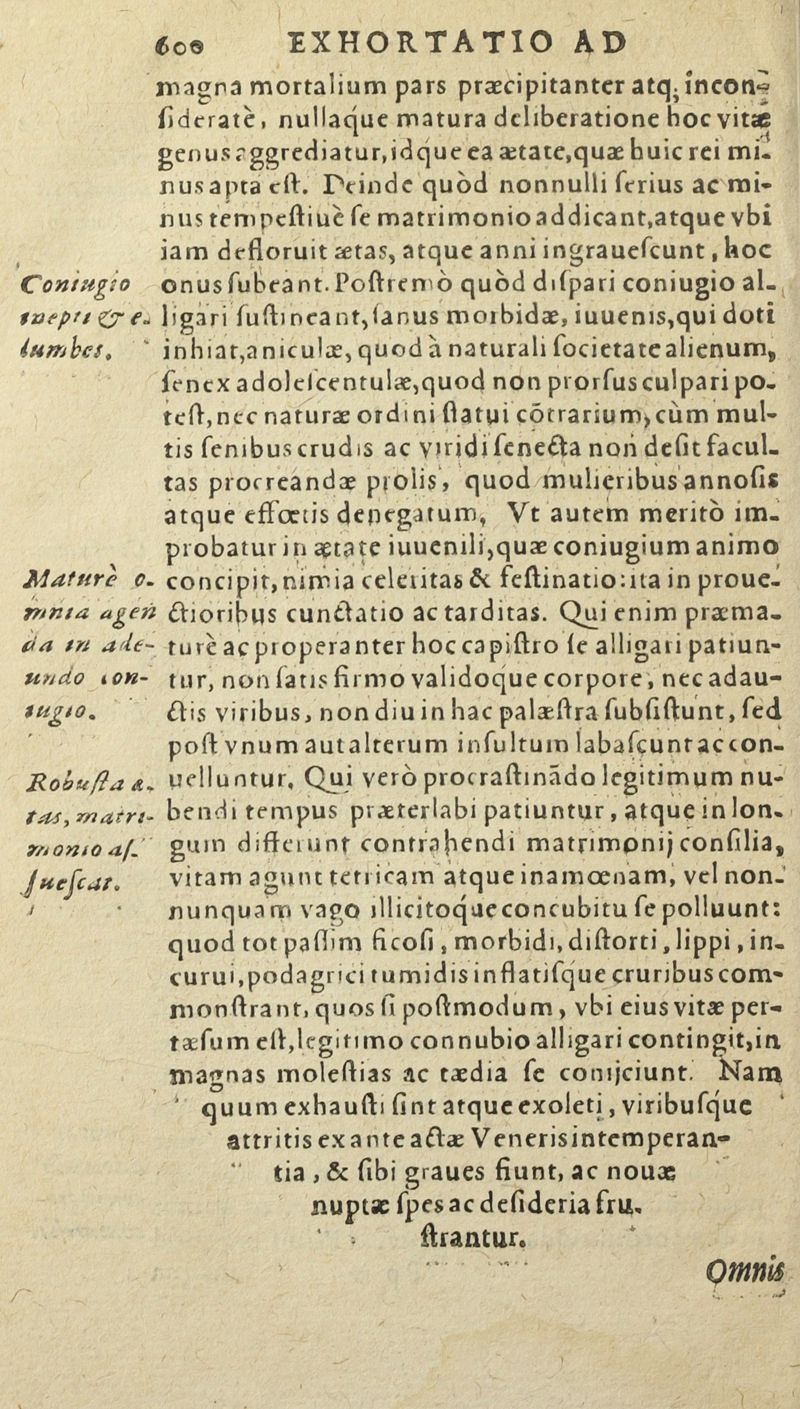 600 EXHORTATIO AD
magna mortalium pars præcipitanter atq; incon-
ſideratè, nullaque matura deliberatione hoc vitæ
genus aggrediatur, idque ea ætate, quæ huic rei mi-
nus apta eſt. Deinde quòd nonnulli ſerius ac mi-
nus tempeſtiuè ſe matrimonio addicant, atque vbi
iam defloruit ætas, atque anni ingraueſcunt, hoc
onus ſubeant. Poſtremò quòd diſpari coniugio al-
ligari ſuſtineant, ſanus morbidæ, iuuenis, qui doti
inhiat, aniculæ, quod à naturali ſocietate alienum,
ſenex adoleſcentulæ, quod non prorſus culpari po-
teſt, nec naturæ ordini ſtatui cōtrarium, cùm mul-
tis ſenibus crudis ac viridi ſenecta non deſit facul-
tas procreandæ prolis, quod mulieribus annoſis
atque effœtis denegatum, Vt autem meritò im-
probatur in ætate iuuenili, quæ coniugium animo
concipit, nimia celeritas & feſtinatio: ita in proue-
ctioribus cunctatio ac tarditas. Qui enim præma-
turè ac properanter hoc capiſtro ſe alligari patiun-
tur, non ſatis firmo validoque corpore, nec adau-
ctis viribus, non diu in hac palæſtra ſubſiſtunt, ſed
poſt vnum aut alterum inſultum labaſcunt ac con-
uelluntur. Qui verò procraſtinādo legitimum nu-
bendi tempus præterlabi patiuntur, atque in lon-
gum differunt contrahendi matrimonij conſilia,
vitam agunt tetricam atque inamœnam, vel non-
nunquam vago illicitoque concubitu ſe polluunt:
quod tot paſſim ficoſi, morbidi, diſtorti, lippi, in-
curui, podagrici tumidis inflatiſque cruribus com-
monſtrant, quos ſi poſtmodum, vbi eius vitæ per-
tæſum eſt, legitimo connubio alligari contingit, in
magnas moleſtias ac tædia ſe conijciunt. Nam
quum exhauſti ſint atque exoleti, viribuſque
attritis ex ante acta Veneris intemperan-
tia, & ſibi graues fiunt, ac nouæ
nuptæ ſpes ac deſideria fru-
ſtrantur.
Omnis
Coniugio
inepti & e-
lumbes.
Maturè o-
mnia agen
da in ade-
undo con-
iugio.
Robuſta æ-
tas, matri-
monio aſ-
ſueſcat.